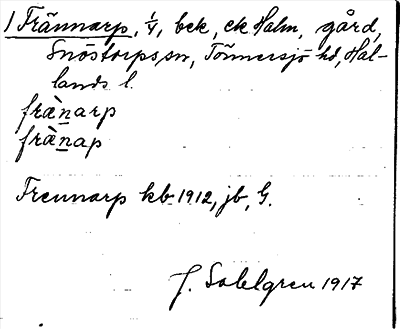 1 Frännarp, 1/4, bek, ek Halm, gård,
Snöstorps sn, Tönnersjö hd, Hal-
lands l.
frä̀narp
frä̀nap
Frennarp kb 1912, jb, G.
J. Sahlgren 1917